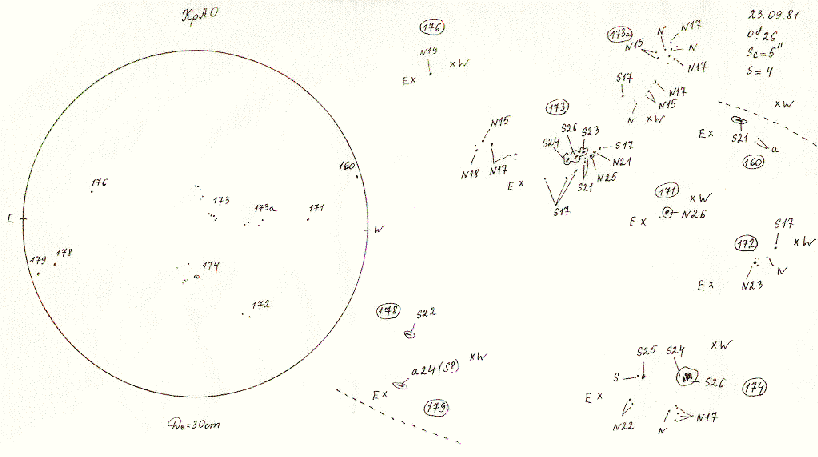 КрАО
23.09.81
S=4
160
176
173
173a
171
E
W
179
178
174
172
176
N19
E x
x W
N
N17
N15
N
N17
S17
N17
N15
N
x W
173
S26
S23
S24
S17
N21
N25
S21
S17
E x
N15
N18
N17
x W
E x
S21
a
160
171
x W
E x
N26
S17
172
x W
E x
N23
N
178
S22
x W
a24 (SP)
E x
179
S25
S24
x W
S
S26
174
E x
N22
N
N17